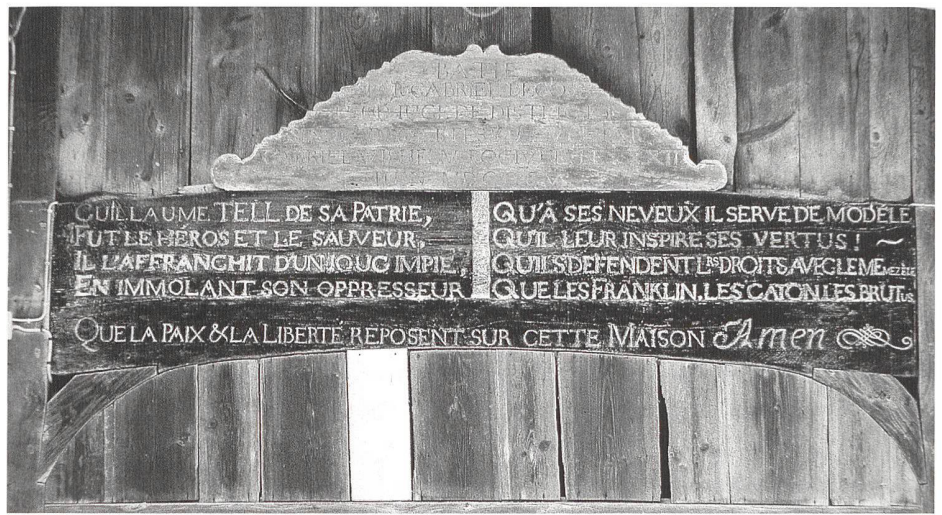 BATIE
GABRIEL
GUILLAUME TELL DE SA PATRIE,
FUT LE HÉROS ET LE SAUVEUR,
IL L'AFFRANCHIT D'UN JOUG IMPIE,
EN IMMOLANT SON OPPRESSEUR
QU'À SES NEVEUX IL SERVE DE MODÈLE
QU'IL LEUR INSPIRE SES VERTUS !
QU'ILS DEFENDENT LRS DROITS AVEC LE MEME ZÈLE
QUE LES FRANKLIN, LES CATON, LES BRUTUS.
QUE LA PAIX & LA LIBERTÉ REPOSENT SUR CETTE MAISON Amen